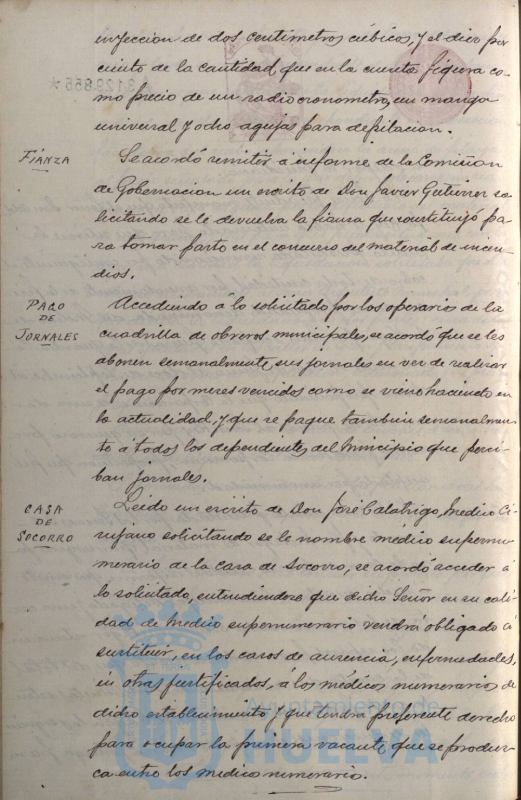 inyeccion de dos centimetros cúbicos, y el diez por
ciento de la cantidad que en la cuenta figura co-
mo precio de un radiocronometro, un mango
universal y ocho agujas para depilacion.
FIANZA
Se acordó remitir á informe de la Comision
de Gobernacion un escrito de Don Javier Gutierrez so-
licitando se le devuelva la fianza que constituyó pa-
ra tomar parte en el concurso del material de incen-
dios.
PAGO
DE
JORNALES
Accediendo á lo solicitado por los operarios de la
cuadrilla de obreros municipales, se acordó que se les
abonen semanalmente sus jornales en vez de realizar
el pago por meses vencidos como se viene haciendo en
la actualidad, y que se pague tambien semanalmen-
te á todos los dependientes del Municipio que perci-
ban jornales.
CASA
DE
SOCORRO
Leido un escrito de Don José Calatrigo, Medico Ci-
rujano solicitando se le nombre médico supernu-
merario de la casa de Socorro, se acordó acceder á
lo solicitado, entendiendose que dicho Señor en su cali-
dad de Medico supernumerario vendrá obligado á
sustituir, en los casos de ausencia, enfermedades,
ú otras justificados, á los médicos numerarios de
dicho establecimiento y que tendrá preferente derecho
para ocupar la primera vacante que se produz-
ca entre los medico numerario.
Ayuntamiento de
HUELVA